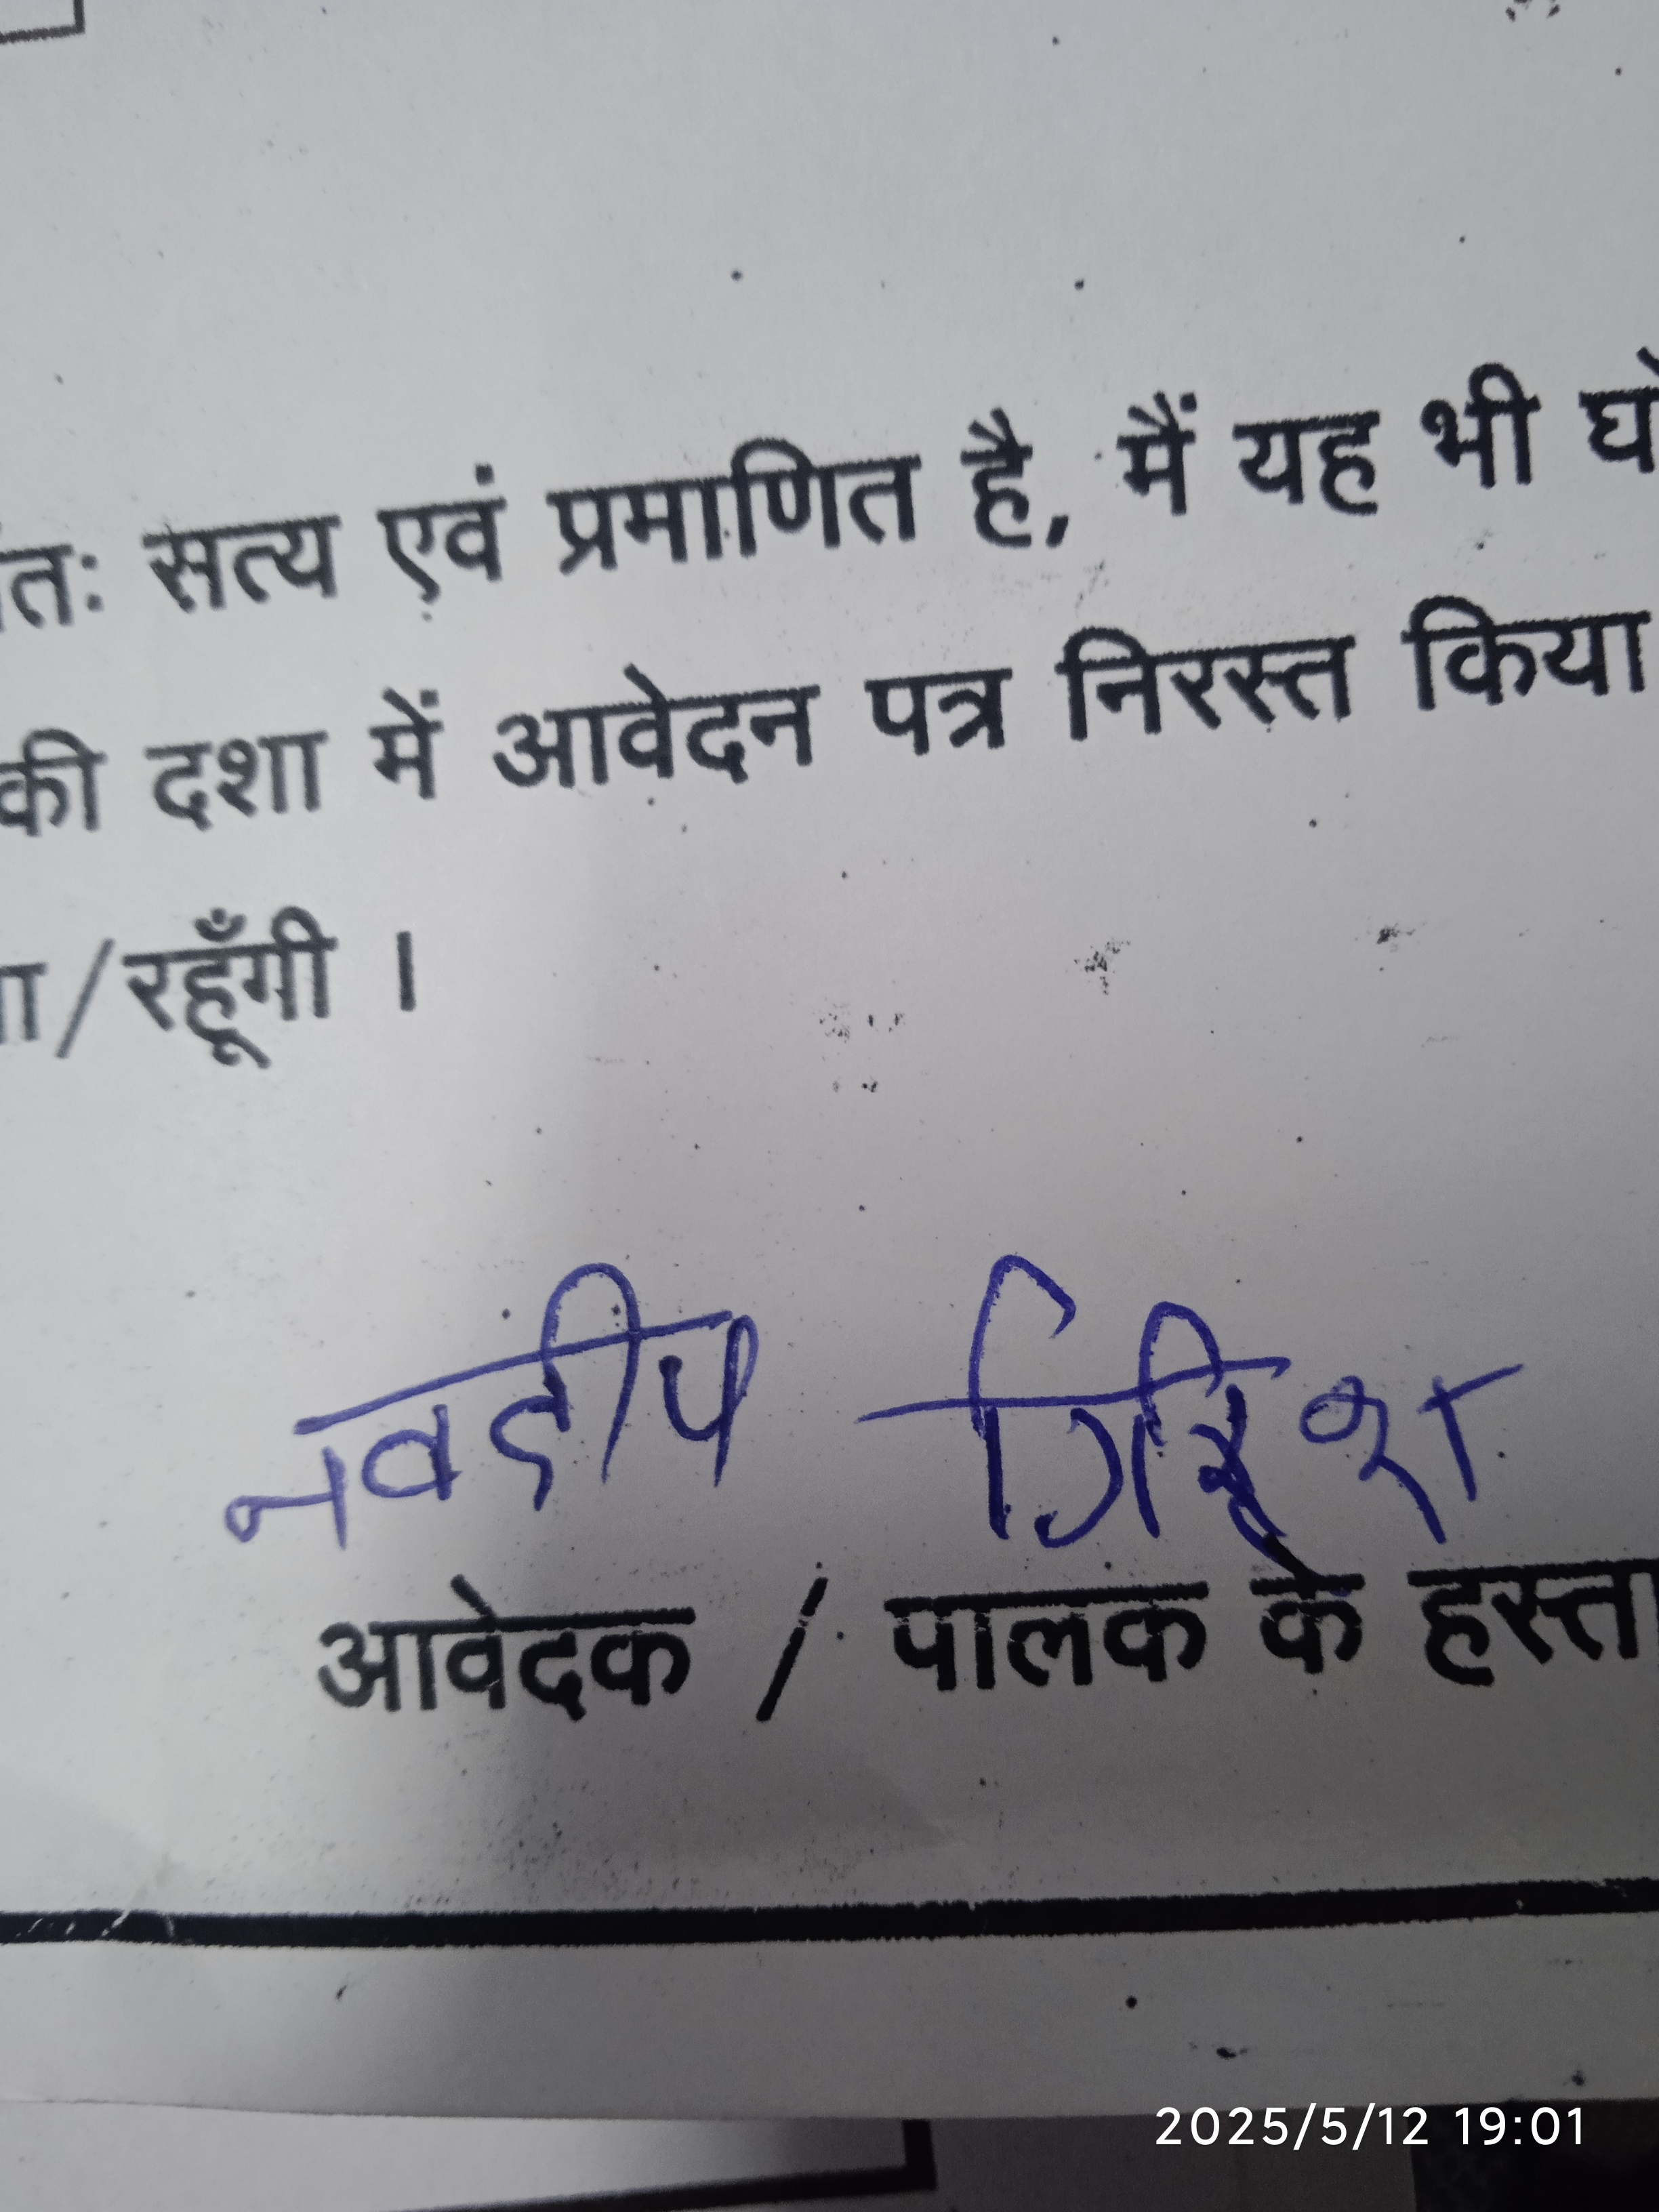 तः सत्य एवं प्रमाणित है, मैं यह भी
की दशा में आवेदन पत्र निरस्त किया
/रहूँगी ।
नवदीप गिरिश
आवेदक / पालक के हस्ता
2025/5/12 19:01